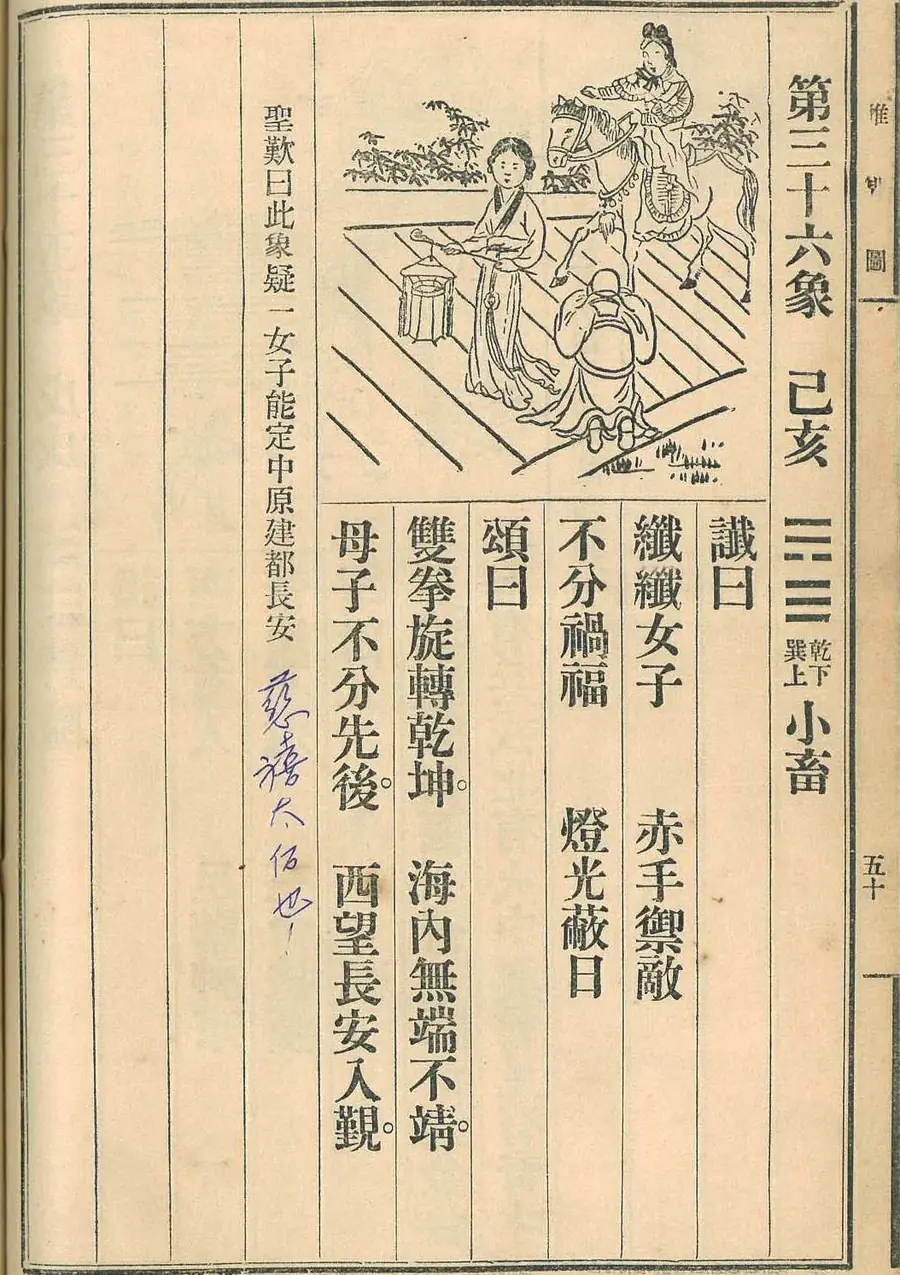 推背圖
五十
第三十六象 己亥 乾下巽上 小畜
讖曰
纖纖女子 赤手禦敵
不分禍福 燈光蔽日
頌曰
雙拳旋轉乾坤。海內無端不靖。
母子不分先後。西望長安入覲。
聖歎曰此象疑一女子能定中原建都長安
慈禧太后也